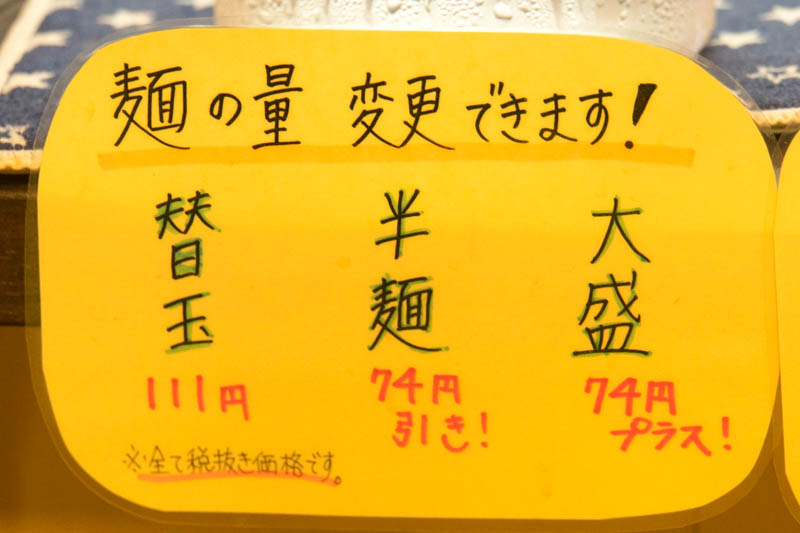 麺の量 変更できます!
大盛
74円
プラス!
半麺
74円
引き!
替玉
111円
※全て税抜き価格です。